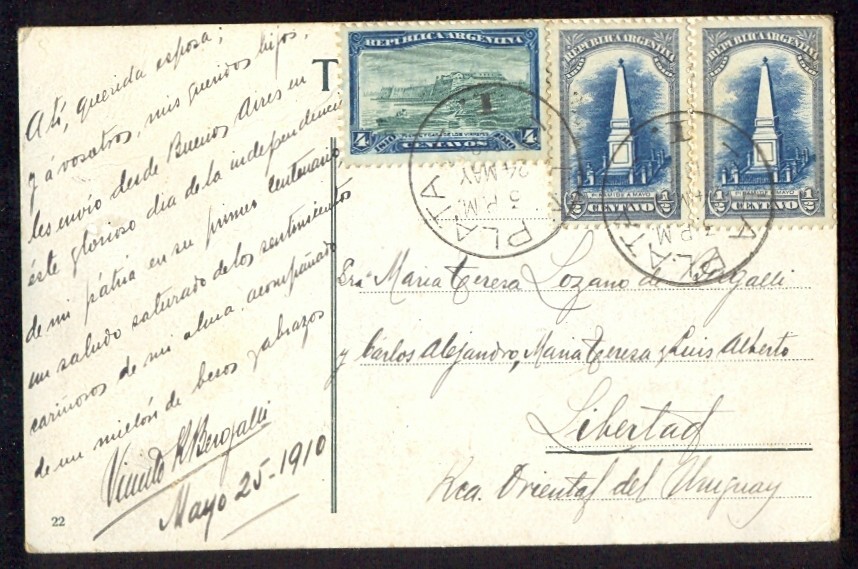 A tí, querida esposa;
y á vosotros, mis queridos hijos,
les envío desde Buenos Aires en
éste glorioso dia de la independencia
de mi pátria en su primer Centenario,
un saludo saturado de los sentimientos
cariñosos de mi alma acompañado
de un millón de besos y abrazos
Bergalli
Mayo 25-1910
22
T
REPUBLICA ARGENTINA
4 1810 1910 4
CENTAVOS
REPUBLICA ARGENTINA
1810 1910
PIRAMIDE DE MAYO
1/2 CENTAVO 1/2
REPUBLICA ARGENTINA
1810 1910
PIRAMIDE DE MAYO
1/2 CENTAVO 1/2
LA PLATA
24 MAY
3 P.M.
1
LA PLATA
P M
1
Sra Maria Teresa Lozano de Bergalli
y Carlos Alejandro, Maria Teresa y Luis Alberto
Libertad
Rca. Oriental del Uruguay